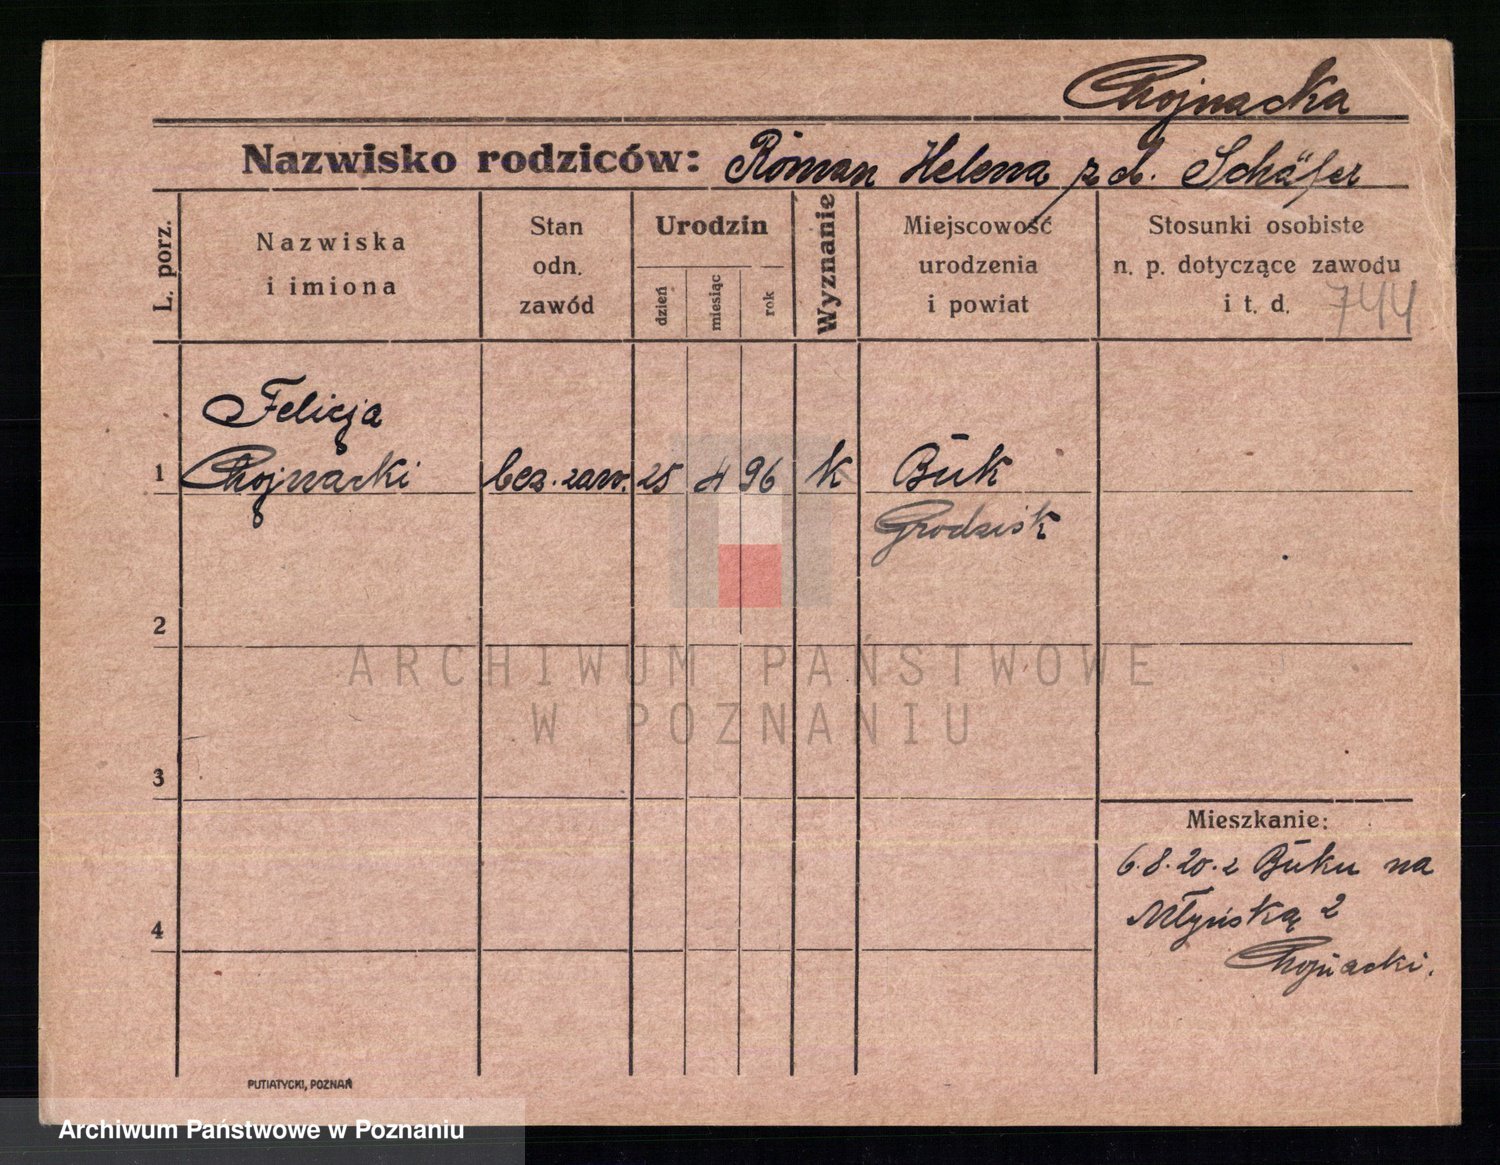 Chojnacka
Nazwisko rodziców: Roman Helena z d. Schäfer
L. porz.
Nazwiska
i imiona
Stan
odn.
zawód
Urodzin
dzień
miesiąc
rok
Wyznanie
Miejscowość
urodzenia
i powiat
Stosunki osobiste
n. p. dotyczące zawodu
i t. d. 744
Felicja
1 Chojnacki bez. zaw. 25 4 96 k Buk
Grodzisk
2
ARCHIWUM PAŃSTWOWE
W POZNANIU
3
Mieszkanie:
6.8.20. z Buku na
Młyńską 2
4
Chojnacki.
PUTIATYCKI, POZNAŃ
Archiwum Państwowe w Poznaniu